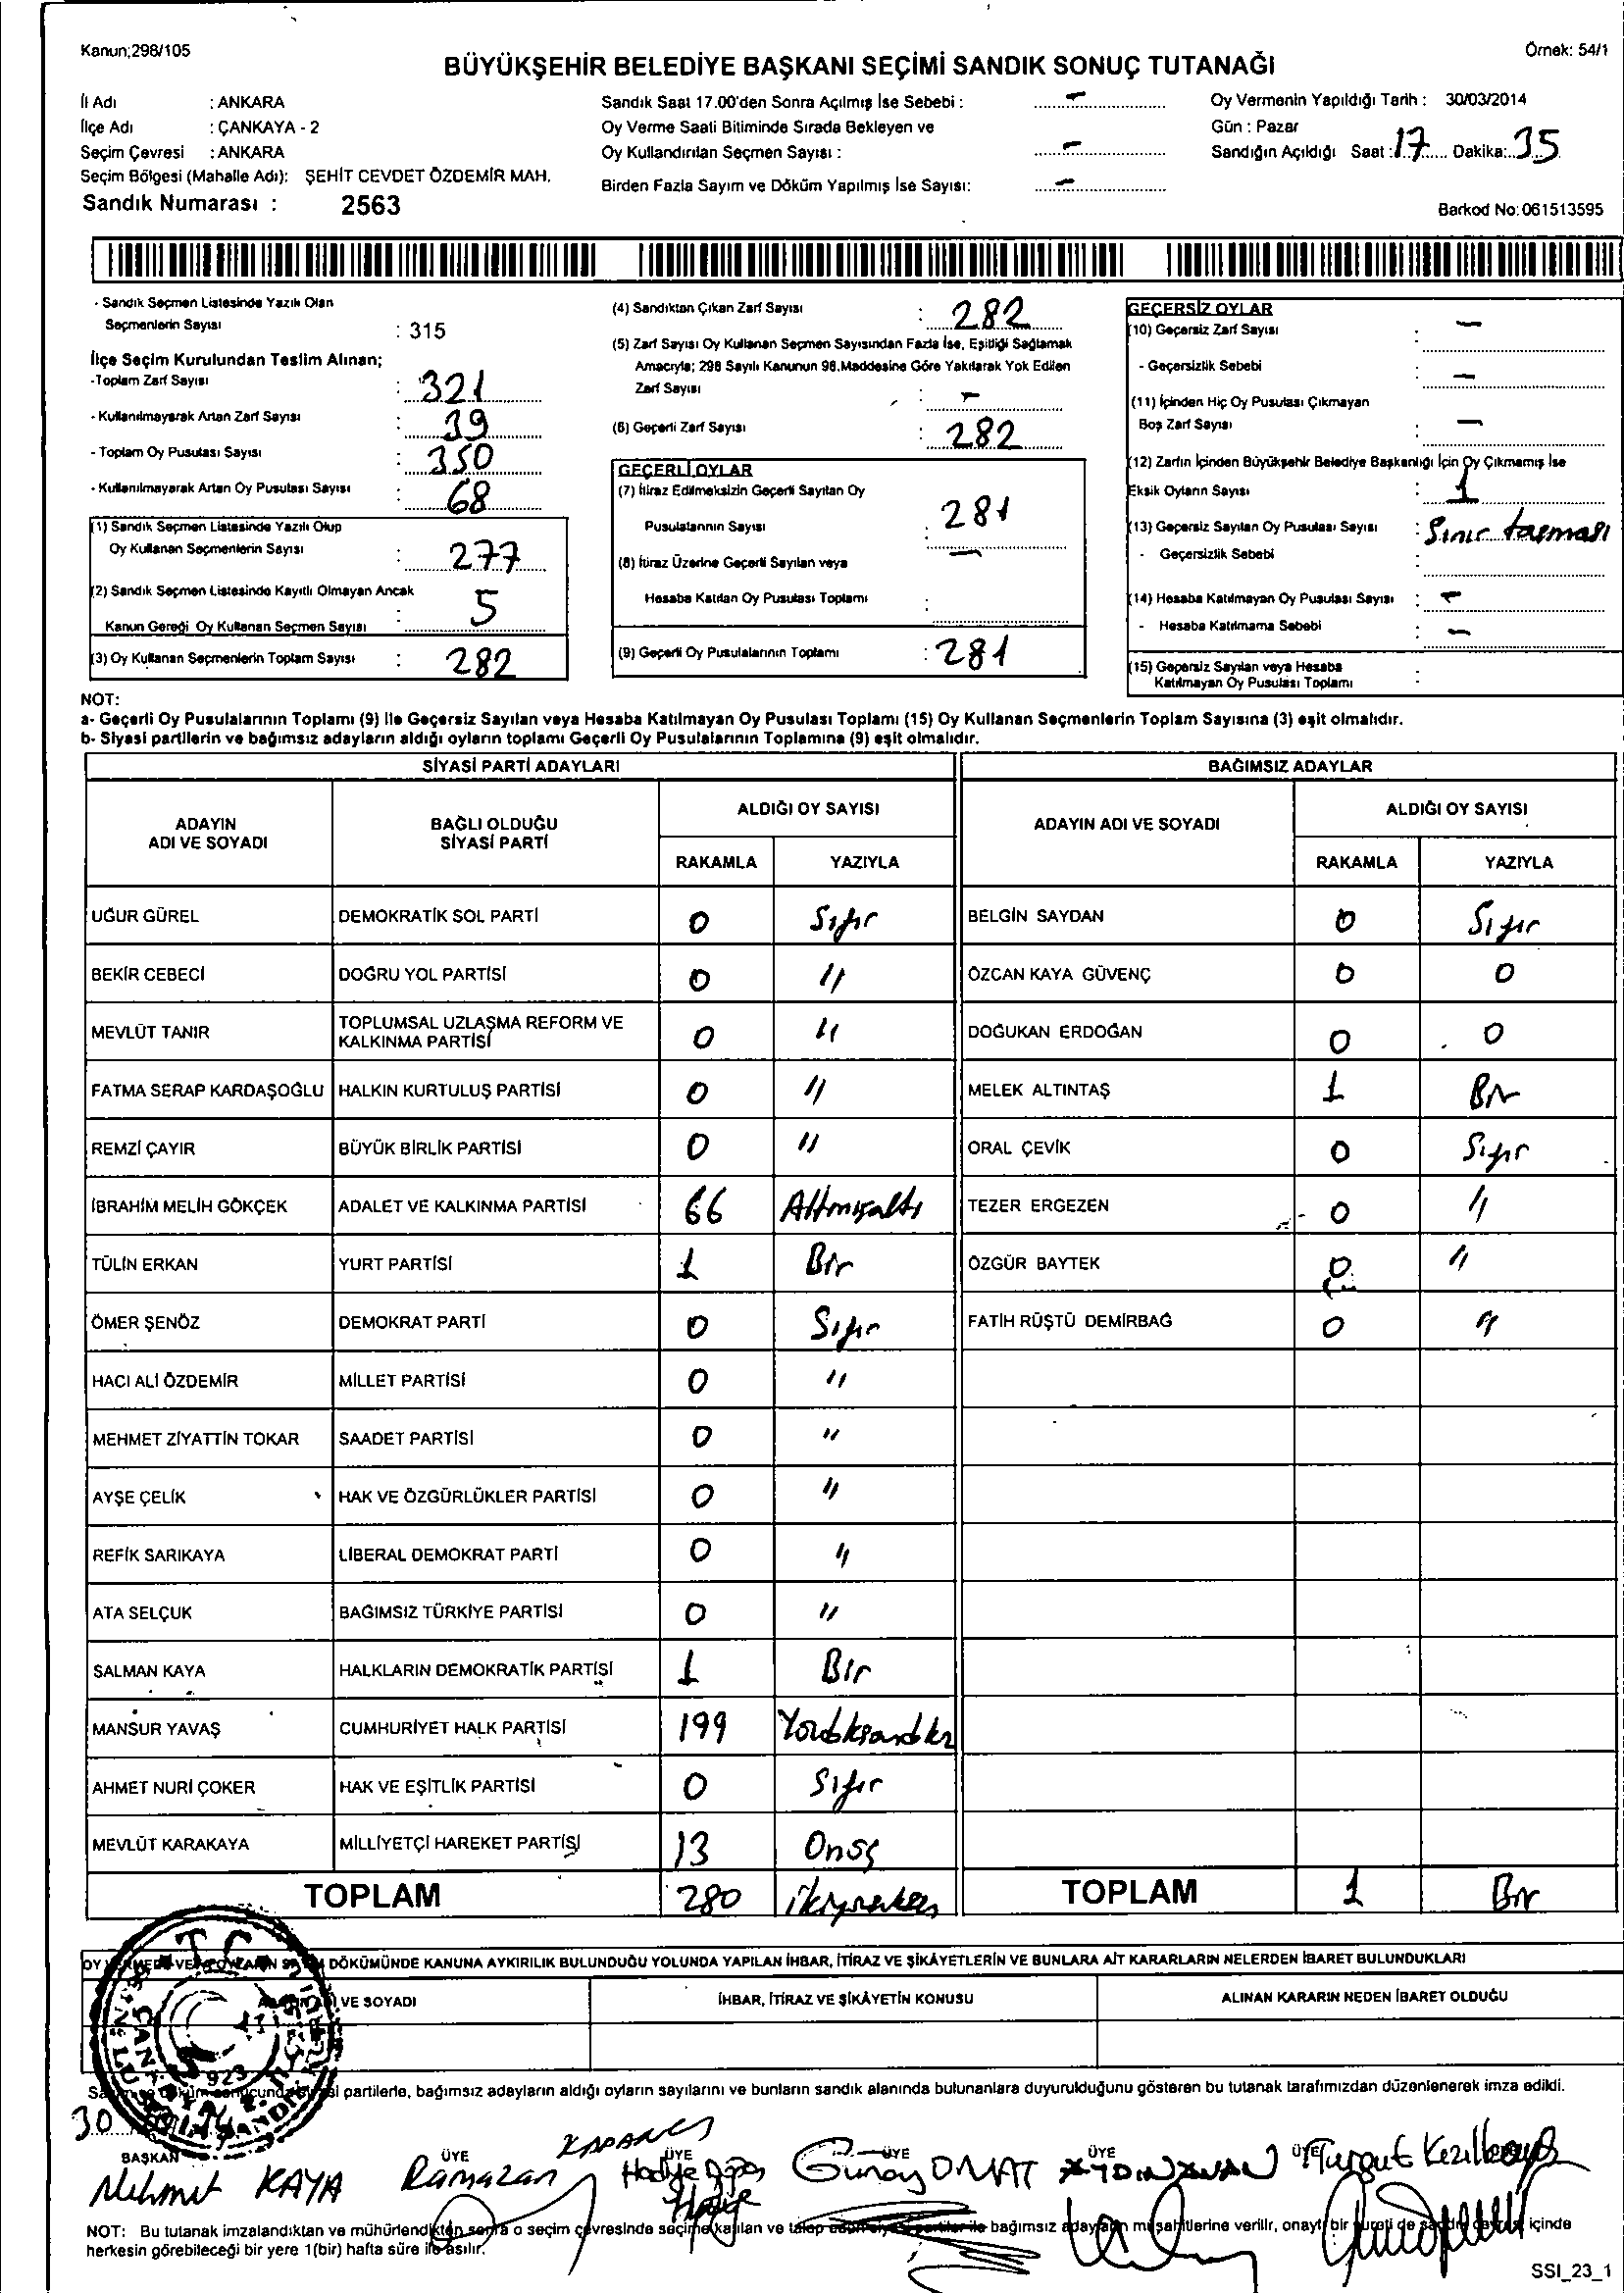 Kanun;298/105
Örnek: 54/1
BÜYÜKŞEHİR BELEDİYE BAŞKANI SEÇİMİ SANDIK SONUÇ TUTANAĞI
İl Adı : ANKARA
İlçe Adı : ÇANKAYA - 2
Seçim Çevresi : ANKARA
Seçim Bölgesi (Mahalle Adı): ŞEHİT CEVDET ÖZDEMİR MAH.
Sandık Numarası : 2563
Sandık Saat 17.00'den Sonra Açılmış İse Sebebi : -
Oy Verme Saati Bitiminde Sırada Bekleyen ve
Oy Kullandırılan Seçmen Sayısı : -
Birden Fazla Sayım ve Döküm Yapılmış İse Sayısı: -
Oy Vermenin Yapıldığı Tarih : 30/03/2014
Gün : Pazar
Sandığın Açıldığı Saat : 17 Dakika: 35
Barkod No: 061513595
- Sandık Seçmen Listesinde Yazılı Olan
Seçmenlerin Sayısı : 315
İlçe Seçim Kurulundan Teslim Alınan;
-Toplam Zarf Sayısı : 321
- Kullanılmayarak Artan Zarf Sayısı : 39
- Toplam Oy Pusulası Sayısı : 350
- Kullanılmayarak Artan Oy Pusulası Sayısı : 68
(1) Sandık Seçmen Listesinde Yazılı Olup
Oy Kullanan Seçmenlerin Sayısı : 277
(2) Sandık Seçmen Listesinde Kayıtlı Olmayan Ancak
Kanun Gereği Oy Kullanan Seçmen Sayısı : 5
(3) Oy Kullanan Seçmenlerin Toplam Sayısı : 282
(4) Sandıktan Çıkan Zarf Sayısı : 282
(5) Zarf Sayısı Oy Kullanan Seçmen Sayısından Fazla İse, Eşitliği Sağlamak
Amacıyla; 298 Sayılı Kanunun 98.Maddesine Göre Yakılarak Yok Edilen
Zarf Sayısı : -
(6) Geçerli Zarf Sayısı : 282
GEÇERLİ OYLAR
(7) İtiraz Edilmeksizin Geçerli Sayılan Oy
Pusulalarının Sayısı : 281
(8) İtiraz Üzerine Geçerli Sayılan veya
Hesaba Katılan Oy Pusulası Toplamı : -
(9) Geçerli Oy Pusulalarının Toplamı : 281
GEÇERSİZ OYLAR
(10) Geçersiz Zarf Sayısı : -
- Geçersizlik Sebebi : -
(11) İçinden Hiç Oy Pusulası Çıkmayan
Boş Zarf Sayısı : -
(12) Zarfın İçinden Büyükşehir Belediye Başkanlığı İçin Oy Çıkmamış İse
Eksik Oyların Sayısı : 1
(13) Geçersiz Sayılan Oy Pusulası Sayısı : Sınır taşması
- Geçersizlik Sebebi :
(14) Hesaba Katılmayan Oy Pusulası Sayısı : -
- Hesaba Katılmama Sebebi : -
(15) Geçersiz Sayılan veya Hesaba
Katılmayan Oy Pusulası Toplamı :
NOT:
a- Geçerli Oy Pusulalarının Toplamı (9) ile Geçersiz Sayılan veya Hesaba Katılmayan Oy Pusulası Toplamı (15) Oy Kullanan Seçmenlerin Toplam Sayısına (3) eşit olmalıdır.
b- Siyasi partilerin ve bağımsız adayların aldığı oyların toplamı Geçerli Oy Pusulalarının Toplamına (9) eşit olmalıdır.
SİYASİ PARTİ ADAYLARI
BAĞIMSIZ ADAYLAR
ADAYIN ADI VE SOYADI
BAĞLI OLDUĞU SİYASİ PARTİ
ALDIĞI OY SAYISI
RAKAMLA YAZIYLA
ADAYIN ADI VE SOYADI
ALDIĞI OY SAYISI
RAKAMLA YAZIYLA
UĞUR GÜREL DEMOKRATİK SOL PARTİ 0 Sıfır BELGİN SAYDAN 0 Sıfır
BEKİR CEBECİ DOĞRU YOL PARTİSİ 0 " ÖZCAN KAYA GÜVENÇ 0 0
MEVLÜT TANIR TOPLUMSAL UZLAŞMA REFORM VE KALKINMA PARTİSİ 0 " DOĞUKAN ERDOĞAN 0 0
FATMA SERAP KARDAŞOĞLU HALKIN KURTULUŞ PARTİSİ 0 " MELEK ALTINTAŞ 1 Bir
REMZİ ÇAYIR BÜYÜK BİRLİK PARTİSİ 0 " ORAL ÇEVİK 0 Sıfır
İBRAHİM MELİH GÖKÇEK ADALET VE KALKINMA PARTİSİ 66 Altmışaltı TEZER ERGEZEN 0 "
TÜLİN ERKAN YURT PARTİSİ 1 Bir ÖZGÜR BAYTEK 0 "
ÖMER ŞENÖZ DEMOKRAT PARTİ 0 Sıfır FATİH RÜŞTÜ DEMİRBAĞ 0 "
HACI ALİ ÖZDEMİR MİLLET PARTİSİ 0 "
MEHMET ZİYATTİN TOKAR SAADET PARTİSİ 0 "
AYŞE ÇELİK HAK VE ÖZGÜRLÜKLER PARTİSİ 0 "
REFİK SARIKAYA LİBERAL DEMOKRAT PARTİ 0 "
ATA SELÇUK BAĞIMSIZ TÜRKİYE PARTİSİ 0 "
SALMAN KAYA HALKLARIN DEMOKRATİK PARTİSİ 1 Bir
MANSUR YAVAŞ CUMHURİYET HALK PARTİSİ 199
AHMET NURİ ÇOKER HAK VE EŞİTLİK PARTİSİ 0 Sıfır
MEVLÜT KARAKAYA MİLLİYETÇİ HAREKET PARTİSİ 13 Onüç
TOPLAM 280 TOPLAM 1 Bir
DÖKÜMÜNDE KANUNA AYKIRILIK BULUNDUĞU YOLUNDA YAPILAN İHBAR, İTİRAZ VE ŞİKÂYETLERİN VE BUNLARA AİT KARARLARIN NELERDEN İBARET BULUNDUKLARI
VE SOYADI İHBAR, İTİRAZ VE ŞİKÂYETİN KONUSU ALINAN KARARIN NEDEN İBARET OLDUĞU
partilerle, bağımsız adayların aldığı oyların sayılarını ve bunların sandık alanında bulunanlara duyurulduğunu gösteren bu tutanak tarafımızdan düzenlenerek imza edildi.
30
BAŞKAN ÜYE ÜYE ÜYE ÜYE ÜYE
Mehmet KAYA Ramazan Hadiye Günay ONAT Turgut
NOT: Bu tutanak imzalandıktan ve mühürlendikten sonra o seçim çevresinde seçime katılan ve talep eden siyasi partiler ile bağımsız adayların müşahitlerine verilir, onaylı bir sureti de sandık çevresi içinde
herkesin görebileceği bir yere 1(bir) hafta süre ile asılır.
SSI_23_1